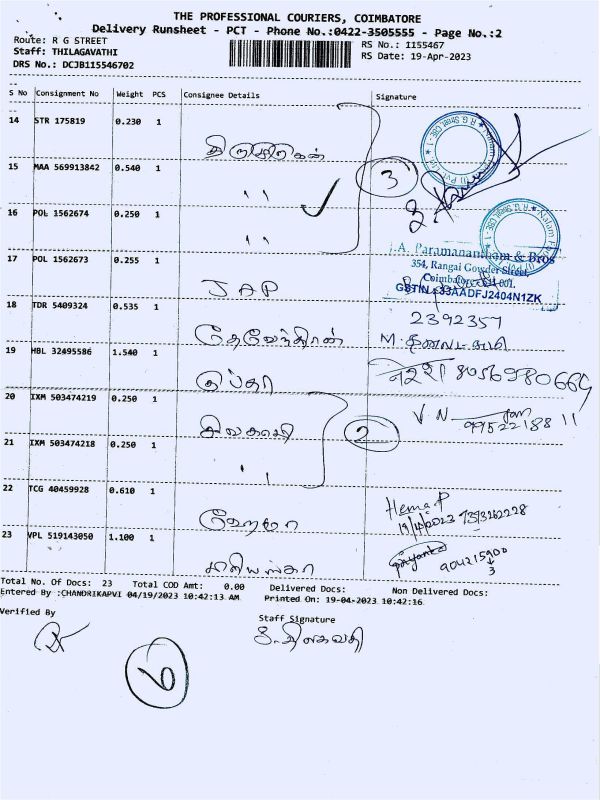 THE PROFESSIONAL COURIERS, COIMBATORE
Delivery Runsheet - PCT - Phone No.:0422-3505555 - Page No.:2
Route: R G STREET
Staff: THILAGAVATHI
RS No.: 1155467
DRS No.: DCJB115546702
RS Date: 19-Apr-2023
S No Consignment No Weight PCS Consignee Details Signature
14 STR 175819 0.230 1
15 MAA 569913842 0.540 1
" 3
16 POL 1562674 0.250 1
"
17 POL 1562673 0.255 1
J A P
J.A. Paramanantham & Bros
354, Rangai Gowder Street,
Coimbatore - 641 001.
GSTIN : 33AADFJ2404N1ZK
18 TDR 5409324 0.535 1
2392357
தேவேந்திரன்
19 HBL 32495586 1.540 1
20 IXM 503474219 0.250 1
V. N
2
21 IXM 503474218 0.250 1
"
22 TCG 40459928 0.610 1
Hema P
ஹேமா
23 VPL 519143050 1.100 1
Priyanka
Total No. Of Docs: 23 Total COD Amt: 0.00 Delivered Docs: Non Delivered Docs:
Entered By :CHANDRIKAPVI 04/19/2023 10:42:13 AM Printed On: 19-04-2023 10:42:16
Verified By
Staff Signature
6